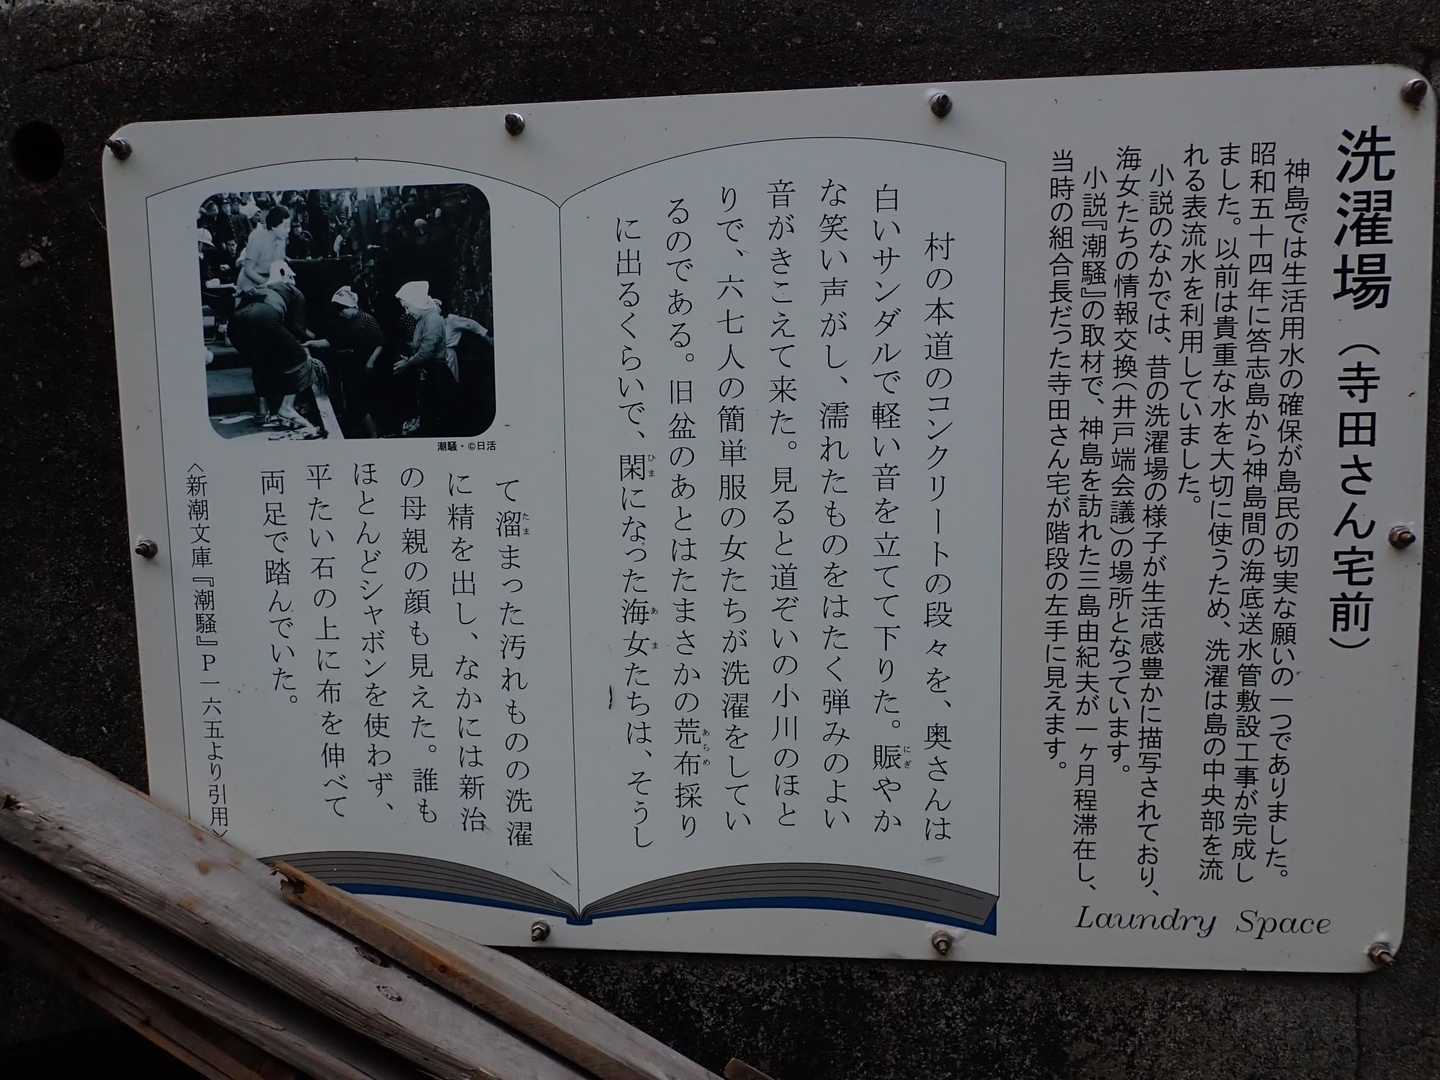 洗濯場（寺田さん宅前）
神島では生活用水の確保が島民の切実な願いの一つでありました。
昭和五十四年に答志島から神島間の海底送水管敷設工事が完成し
ました。以前は貴重な水を大切に使うため、洗濯は島の中央部を流
れる表流水を利用していました。
小説のなかでは、昔の洗濯場の様子が生活感豊かに描写されており、
海女たちの情報交換（井戸端会議）の場所となっています。
小説『潮騒』の取材で、神島を訪れた三島由紀夫が一ヶ月程滞在し、
当時の組合長だった寺田さん宅が階段の左手に見えます。
Laundry Space
村の本道のコンクリートの段々を、奥さんは
白いサンダルで軽い音を立てて下りた。賑やか
な笑い声がし、濡れたものをはたく弾みのよい
音がきこえて来た。見ると道ぞいの小川のほと
りで、六七人の簡単服の女たちが洗濯をしてい
るのである。旧盆のあとはたまさかの荒布採り
に出るくらいで、閑になった海女たちは、そうし
て溜まった汚れものの洗濯
に精を出し、なかには新治
の母親の顔も見えた。誰も
ほとんどシャボンを使わず、
平たい石の上に布を伸べて
両足で踏んでいた。
〈新潮文庫『潮騒』P一六五より引用〉
潮騒・©日活